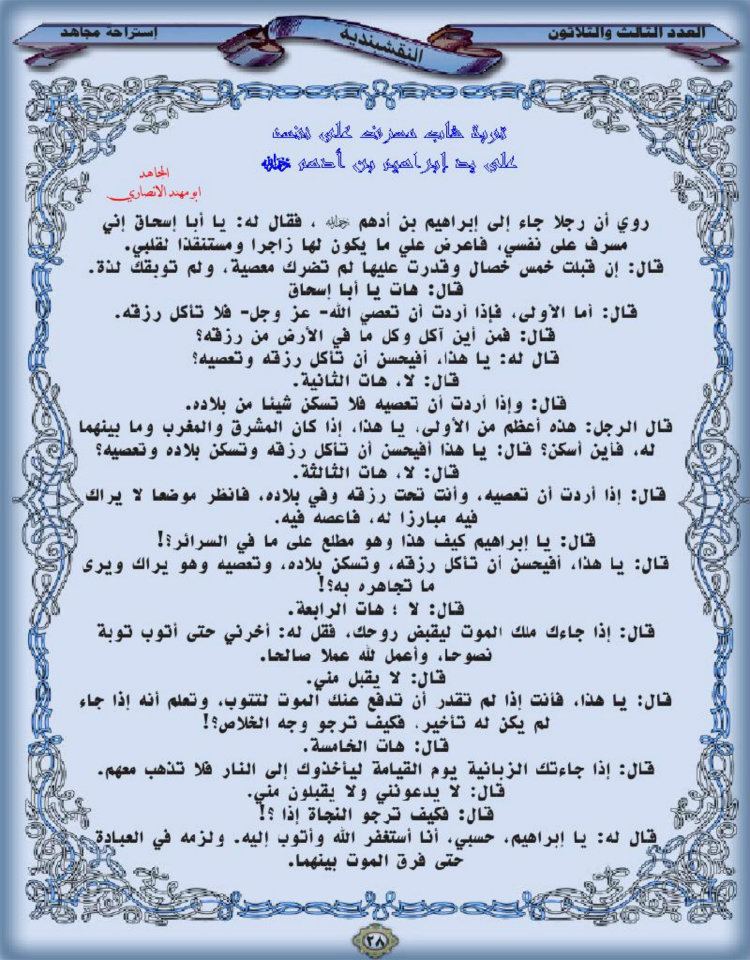 العدد الثالث والثلاثون
النقشبندية
إستراحة مجاهد
توبة شاب مسرف على نفسه
على يد إبراهيم بن أدهم رحمه الله
المجاهد
ابو مهند الانصاري
روي أن رجلا جاء إلى إبراهيم بن أدهم رحمه الله ، فقال له: يا أبا إسحاق إني
مسرف على نفسي، فاعرض علي ما يكون لها زاجرا ومستنقذا لقلبي.
قال: إن قبلت خمس خصال وقدرت عليها لم تضرك معصية، ولم توبقك لذة.
قال: هات يا أبا إسحاق
قال: أما الأولى، فإذا أردت أن تعصي الله- عز وجل- فلا تأكل رزقه.
قال: فمن أين آكل وكل ما في الأرض من رزقه؟
قال له: يا هذا، أفيحسن أن تأكل رزقه وتعصيه؟
قال: لا، هات الثانية.
قال: وإذا أردت أن تعصيه فلا تسكن شيئا من بلاده.
قال الرجل: هذه أعظم من الأولى، يا هذا، إذا كان المشرق والمغرب وما بينهما
له، فأين أسكن؟ قال: يا هذا أفيحسن أن تأكل رزقه وتسكن بلاده وتعصيه؟
قال: لا، هات الثالثة.
قال: إذا أردت أن تعصيه، وأنت تحت رزقه وفي بلاده، فانظر موضعا لا يراك
فيه مبارزا له، فاعصه فيه.
قال: يا إبراهيم كيف هذا وهو مطلع على ما في السرائر؟!
قال: يا هذا، أفيحسن أن تأكل رزقه، وتسكن بلاده، وتعصيه وهو يراك ويرى
ما تجاهره به؟!
قال: لا ؛ هات الرابعة.
قال: إذا جاءك ملك الموت ليقبض روحك، فقل له: أخرني حتى أتوب توبة
نصوحا، وأعمل لله عملا صالحا.
قال: لا يقبل مني.
قال: يا هذا، فأنت إذا لم تقدر أن تدفع عنك الموت لتتوب، وتعلم أنه إذا جاء
لم يكن له تأخير، فكيف ترجو وجه الخلاص؟!
قال: هات الخامسة.
قال: إذا جاءتك الزبانية يوم القيامة ليأخذوك إلى النار فلا تذهب معهم.
قال: لا يدعونني ولا يقبلون مني.
قال: فكيف ترجو النجاة إذا ؟!
قال له: يا إبراهيم، حسبي، أنا أستغفر الله وأتوب إليه. ولزمه في العبادة
حتى فرق الموت بينهما.
٢٨